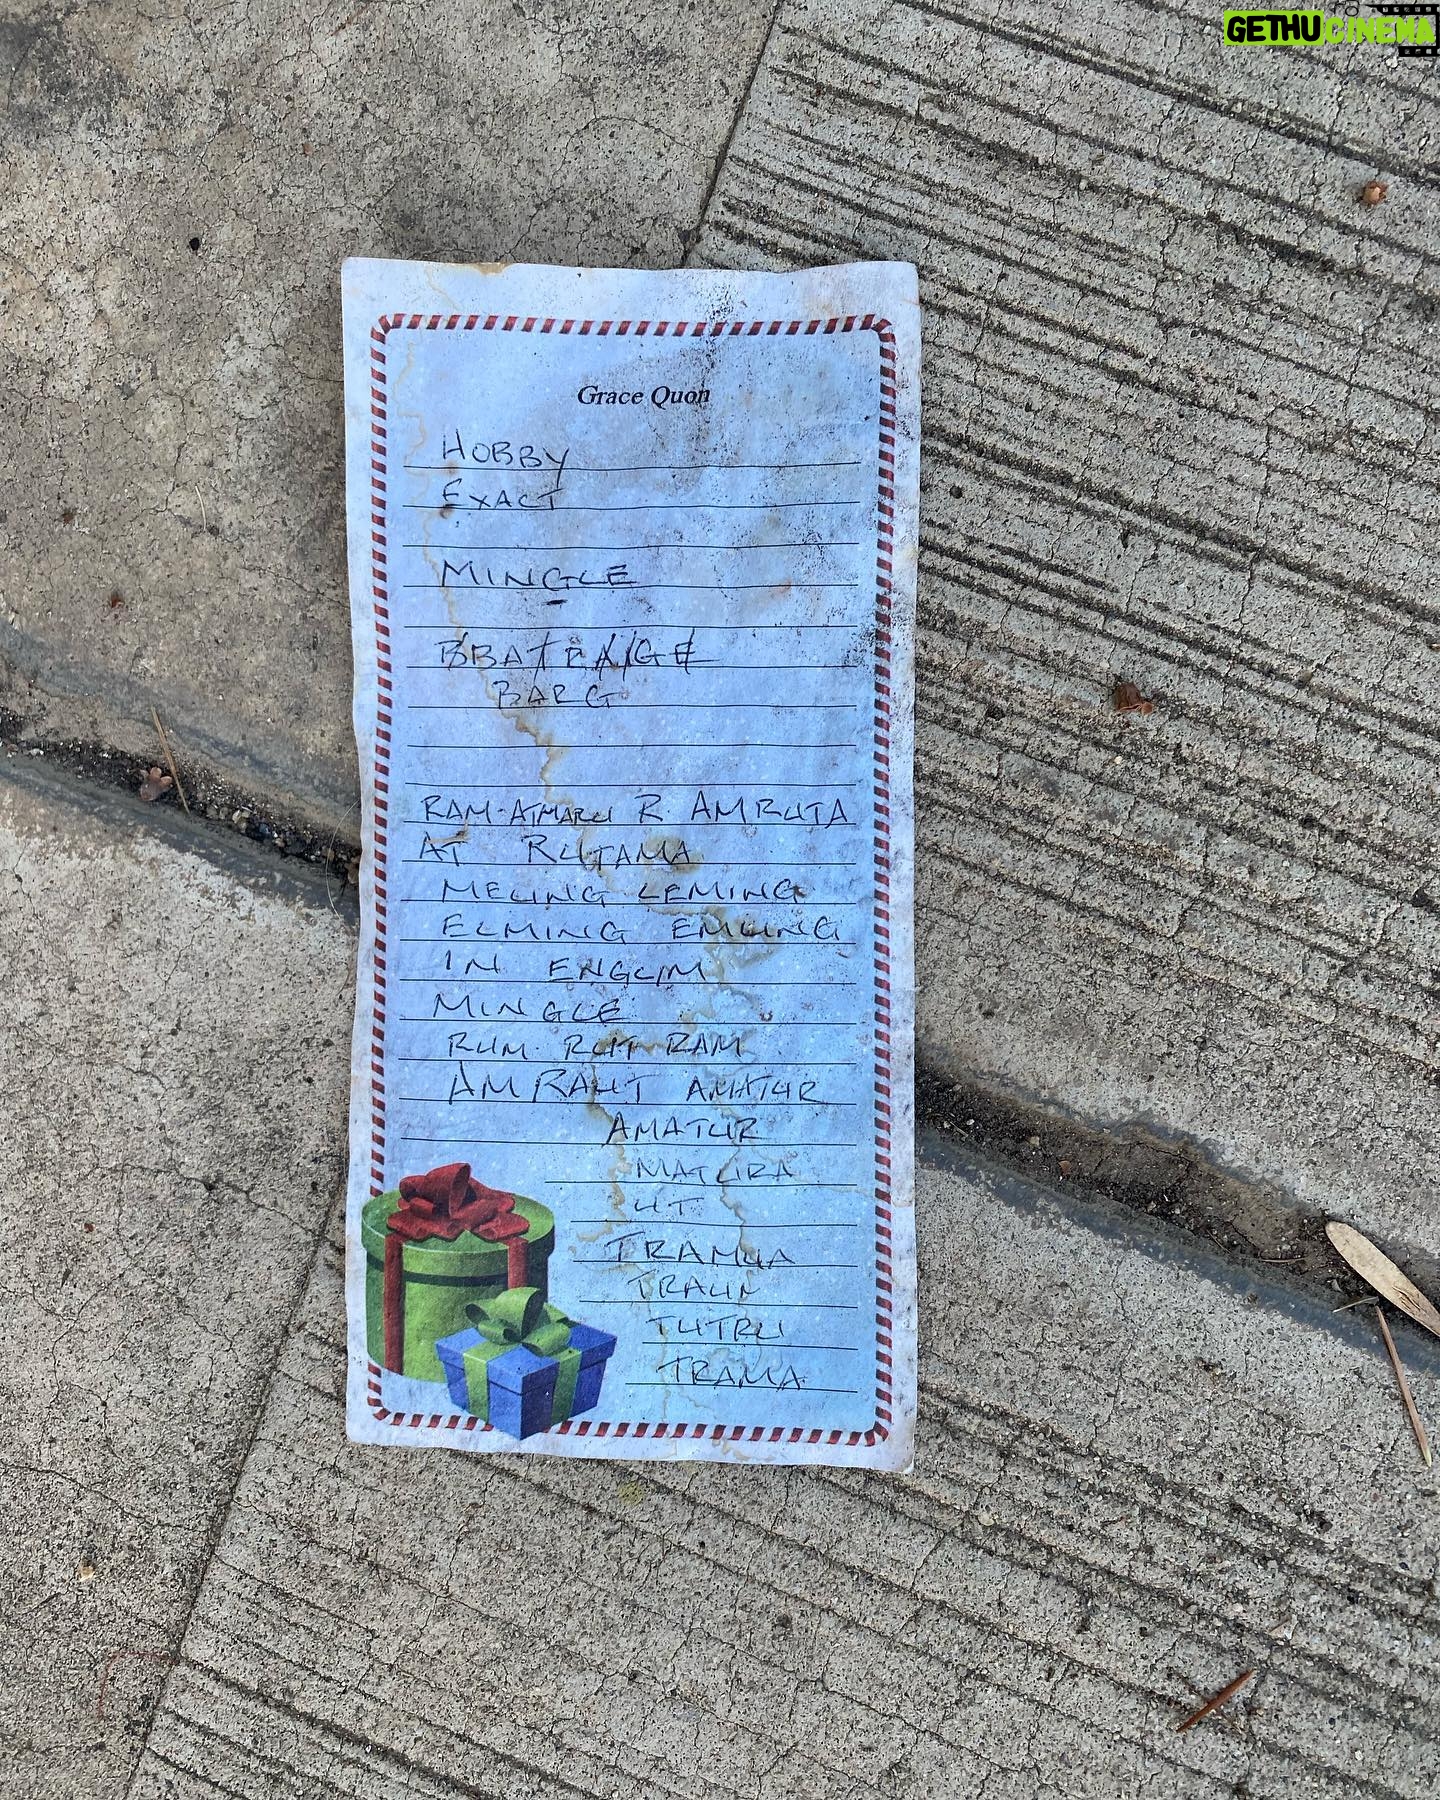 GETHUCINEMA
Grace Quon
HOBBY
EXACT
MINGLE
BBATEA/GE
BARG
RAM-ATMARU R AMRUTA
AT RUTAMA
MELING LEMING
ELMING EMLING
IN ENGLIM
MINGLE
RUM RUT RAM
AMRAUT AMATUR
AMATUR
MATURA
UT
TRAMUA
TRAUM
TUTRU
TRAMA